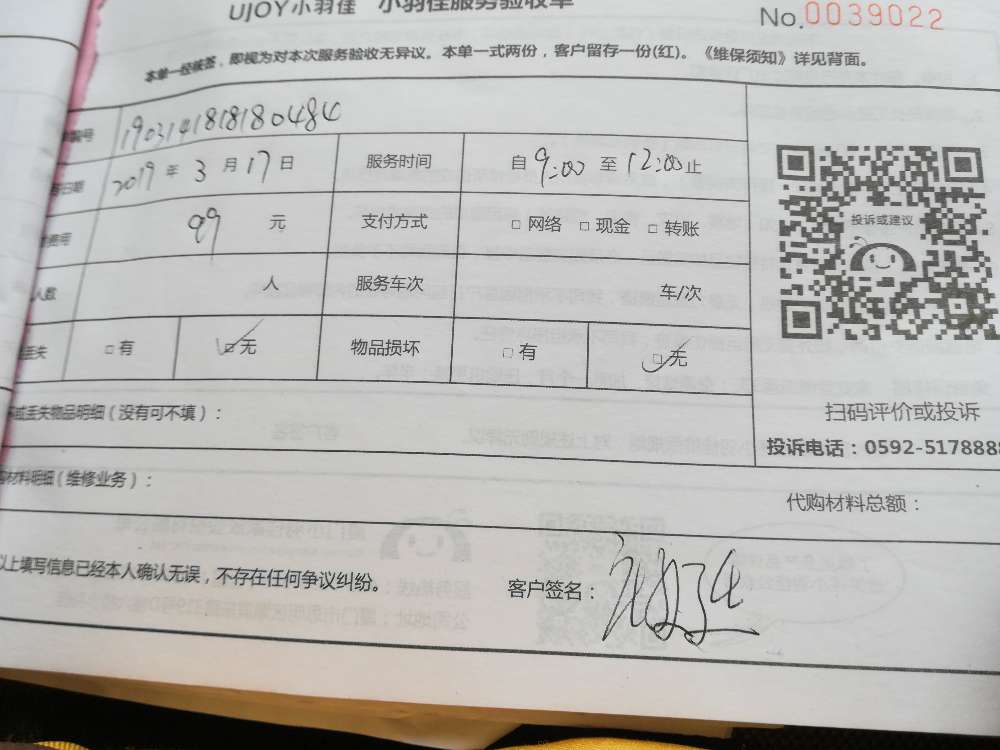 UJOY小羽佳 小羽佳服务验收单
No.0039022
本单一经核签，即视为对本次服务验收无异议。本单一式两份，客户留存一份(红)。《维保须知》详见背面。
编号 190314181818180484
日期 2019年3月17日 服务时间 自9:00至12:00止
费用 99 元 支付方式 □网络 □现金 □转账
人数 人 服务车次 车/次
丢失 □有 ☑无 物品损坏 □有 ☑无
投诉或建议
扫码评价或投诉
投诉电话：0592-5178888
或丢失物品明细（没有可不填）：
材料明细（维修业务）：
代购材料总额：
以上填写信息已经本人确认无误，不存在任何争议纠纷。
客户签名：